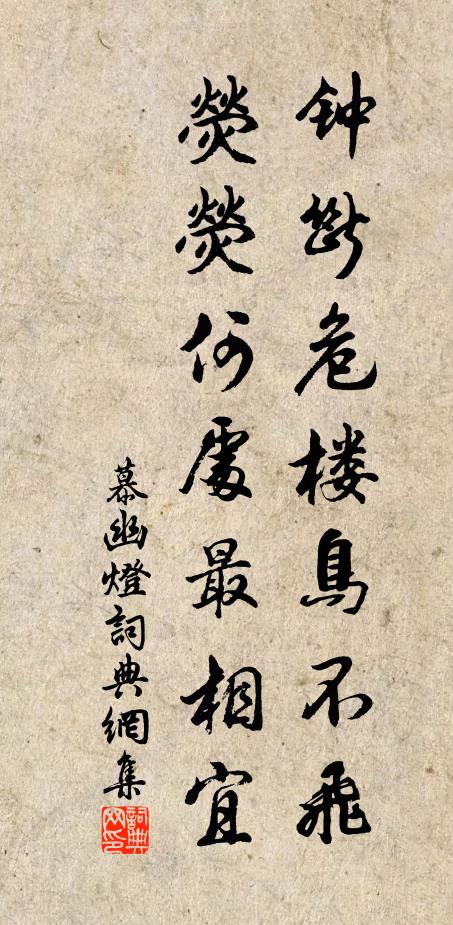 钟断危楼鸟不飞
荧荧何處最相宜
慕幽燈詞典網集
詞典网印